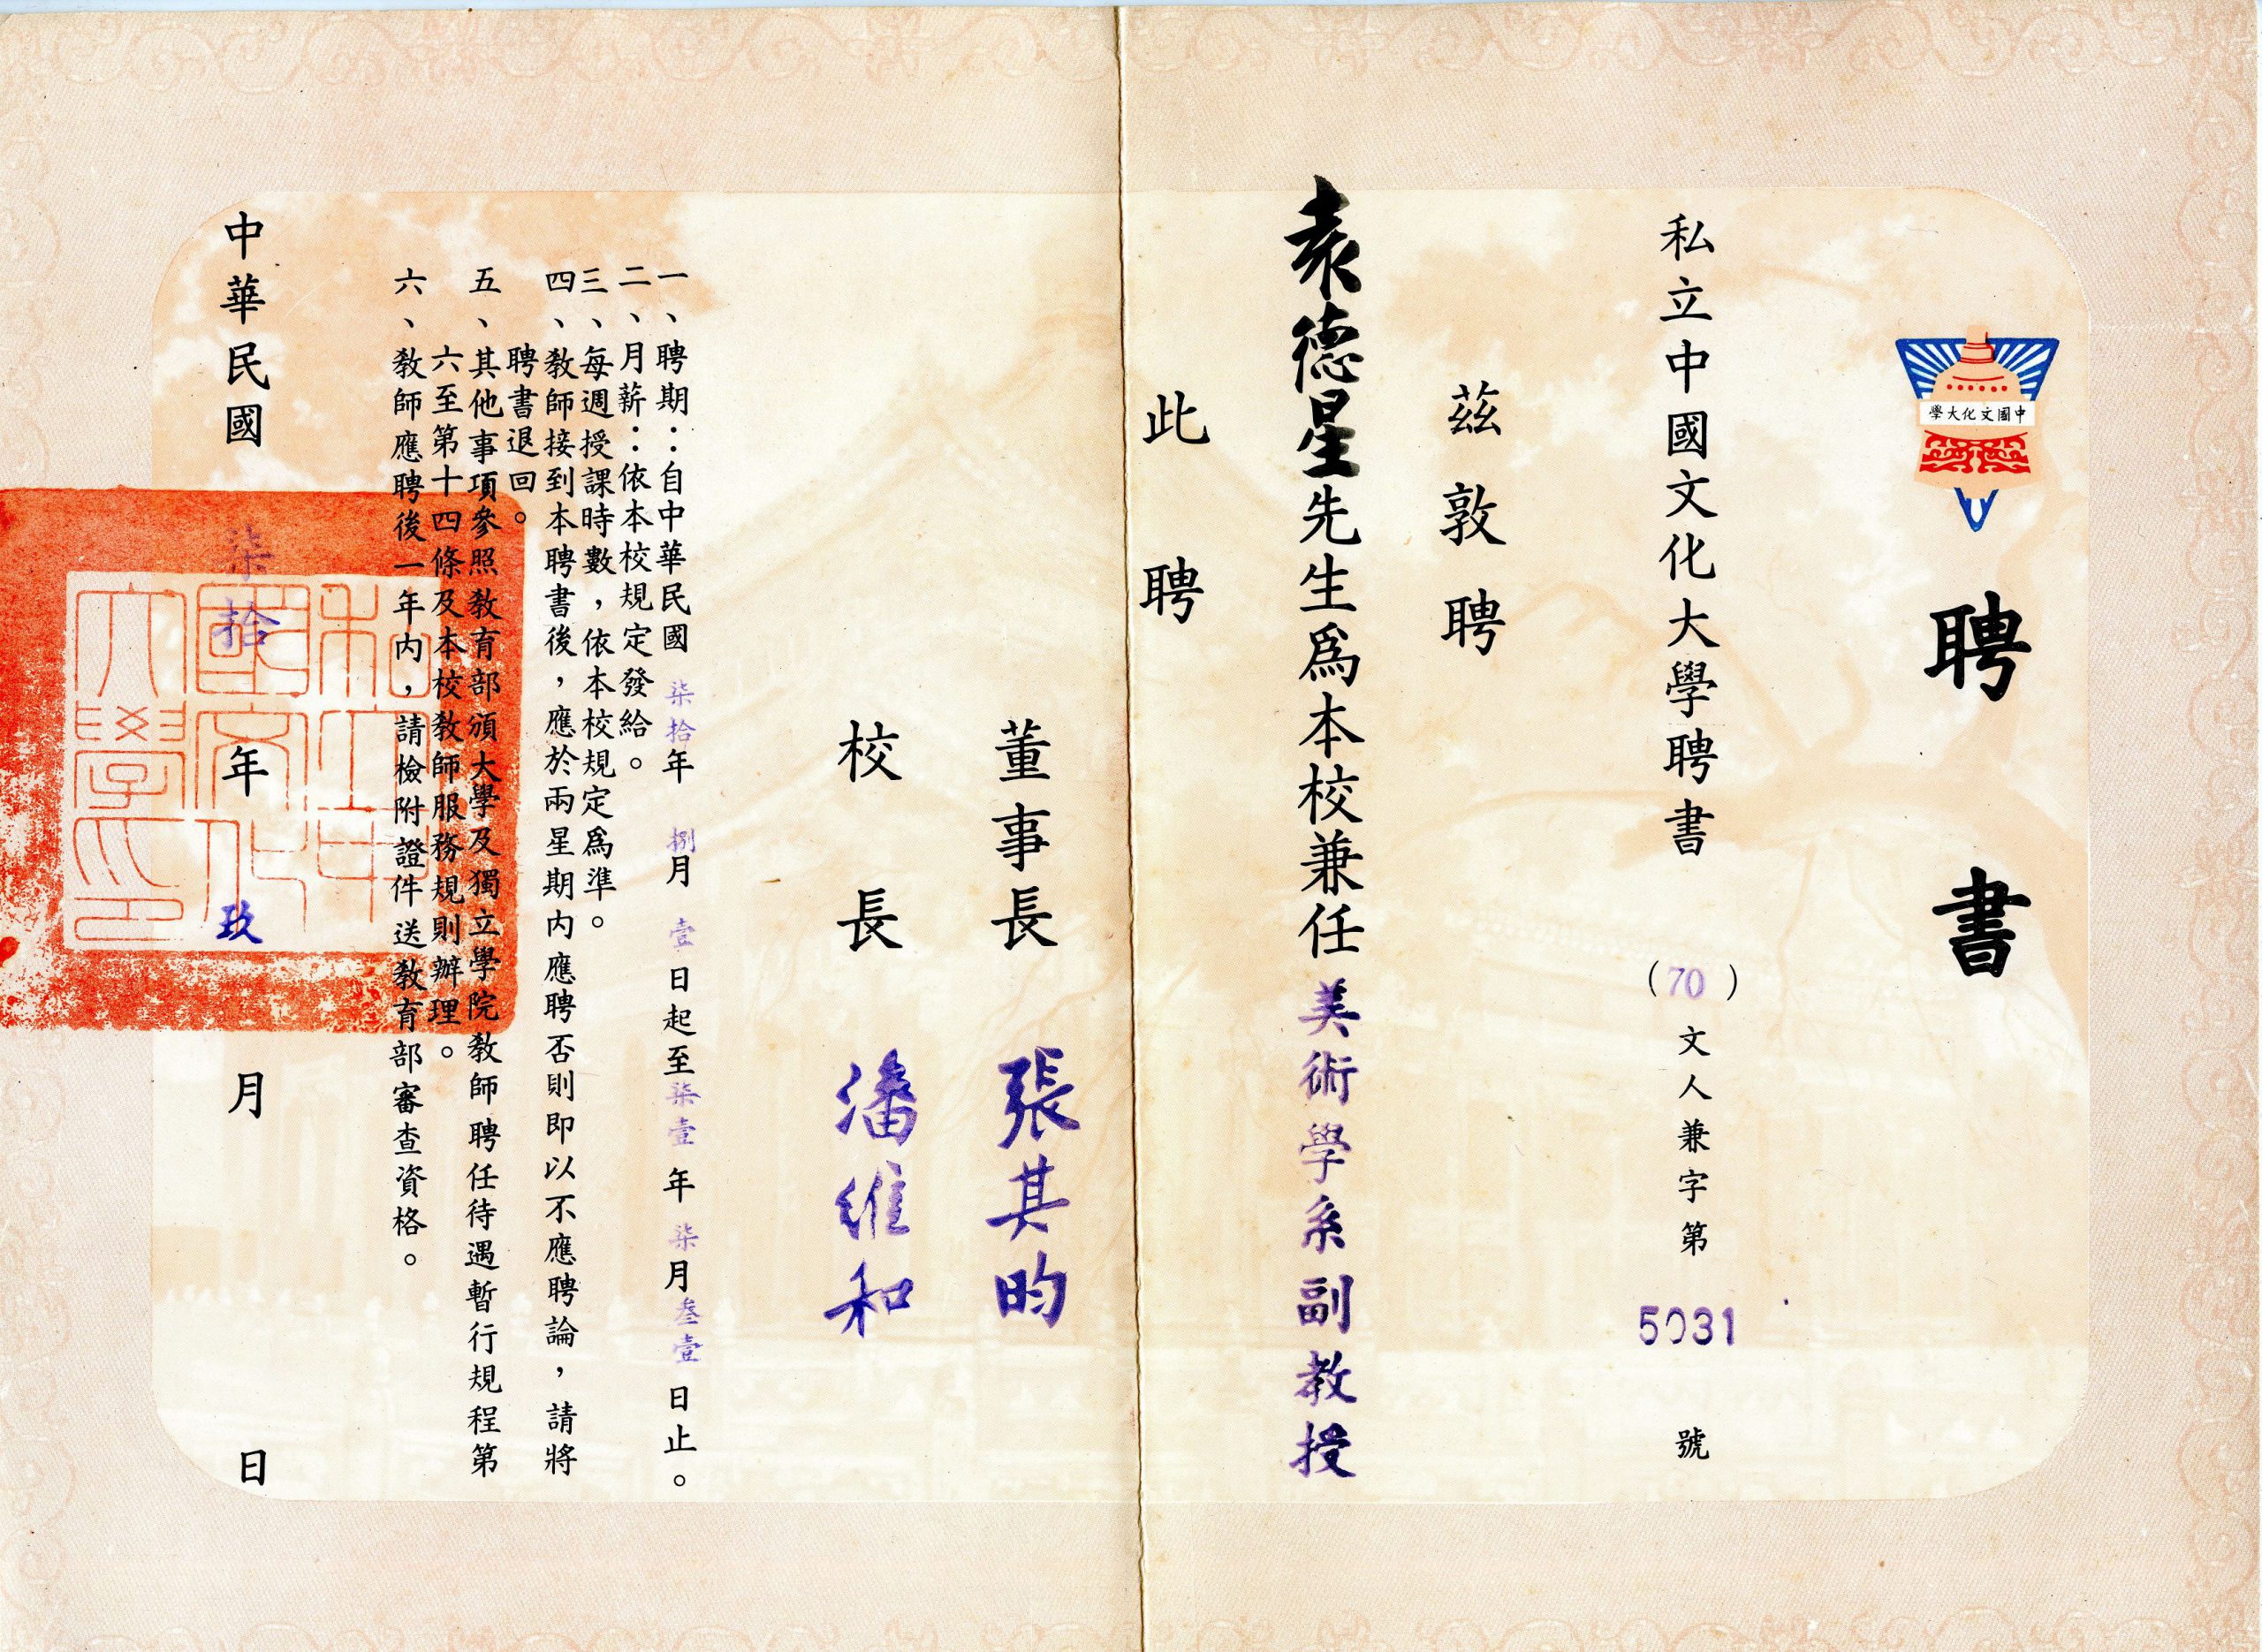 中國文化大學
聘書
私立中國文化大學聘書 (70) 文人兼字第 5031 號
茲敦聘
袁德星先生為本校兼任美術學系副教授
此聘
董事長 張其昀
校長 潘維和
一、聘期：自中華民國柒拾年捌月壹日起至柒壹年柒月叁壹日止。
二、月薪：依本校規定發給。
三、每週授課時數，依本校規定爲準。
四、教師接到本聘書後，應於兩星期內應聘否則即以不應聘論，請將
聘書退回。
五、其他事項參照教育部頒大學及獨立學院教師聘任待遇暫行規程第
六至第十四條及本校教師服務規則辦理。
六、教師應聘後一年內，請檢附證件送教育部審查資格。
中華民國柒拾年玖月 日
私立中國文化大學印